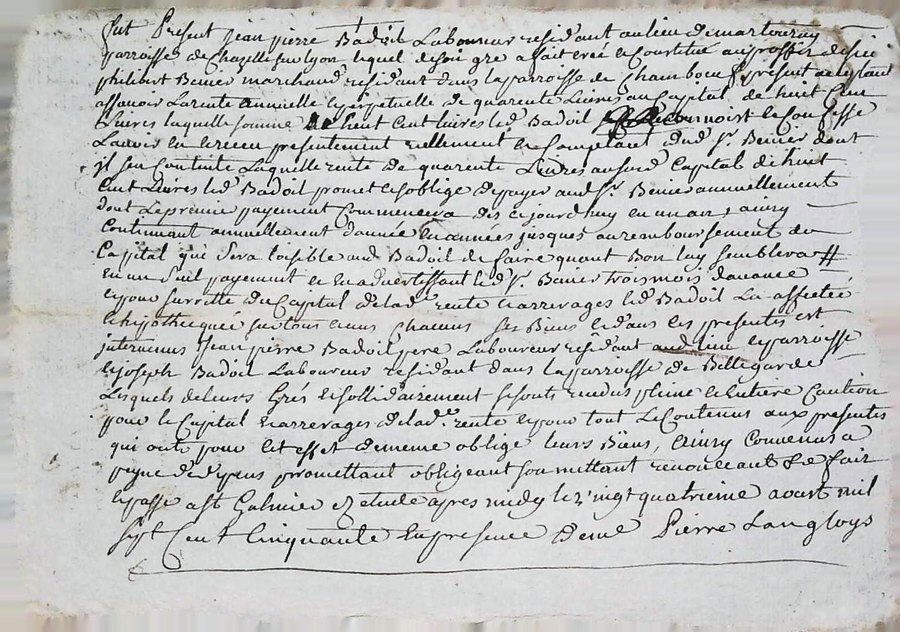 fut Present jean pierre Badoil Laboureur residant au lieu de martouray
parroisse de Chazelle sur Lyon lequel de son gre a fait creé et Constitue au proffit de sieur
philibert Benier marchand residant dans la parroisse de Chambœuf present acceptant
assavoir La rente annuelle et perpetuelle de quarente Livres au Capital de huit Cent
Livres laquelle somme de huit Cent livres led Badoil reconnoist et Confesse
Lavoir eu et receu presentement reellement et Comptant dud Sr. Benier dont
il sen Contente Laquelle rente de quarente Livres ausord Capital de huit
Cent Livres led Badoil promet et soblige de payer aud Sr. Benier annuellement
dont Le premier payement Commencera des ce jourdhuy en un an, ainsy
Continuant annuellement dannée en années jusques au remboursement du
Capital qui sera loisible aud Badoil de faire quant Bon luy semblera #
en un seul payement et en advertissant led Sr. Benier trois mois davance
et pour surette du Capital de lad rente et arrerages led Badoil La affectée
et hipothecquée sur tous et uns Chacuns ses Biens et dans les presentes est
intervenus Jean pierre Badoil pere Laboureur residant aud lieu et parroisse
et joseph Badoil Laboureur residant dans la parroisse de Bellegarde
Lesquels de leurs Grés et sollidairement se sont rendus pleine et Entiere Caution
pour le Capital et arrerages de lad. rente et pour tout Le Contenus aux presentes
qui ont pour cet effet de meme obligé leurs Biens, ainsy Convenus a
peyne de depens promettant obligeant soumettant renonceant &c fait
et passé a St Galmier ez etude apres midy le vingt quatrieme avoust mil
sept Cent Cinquante En presence de me Pierre Langloys